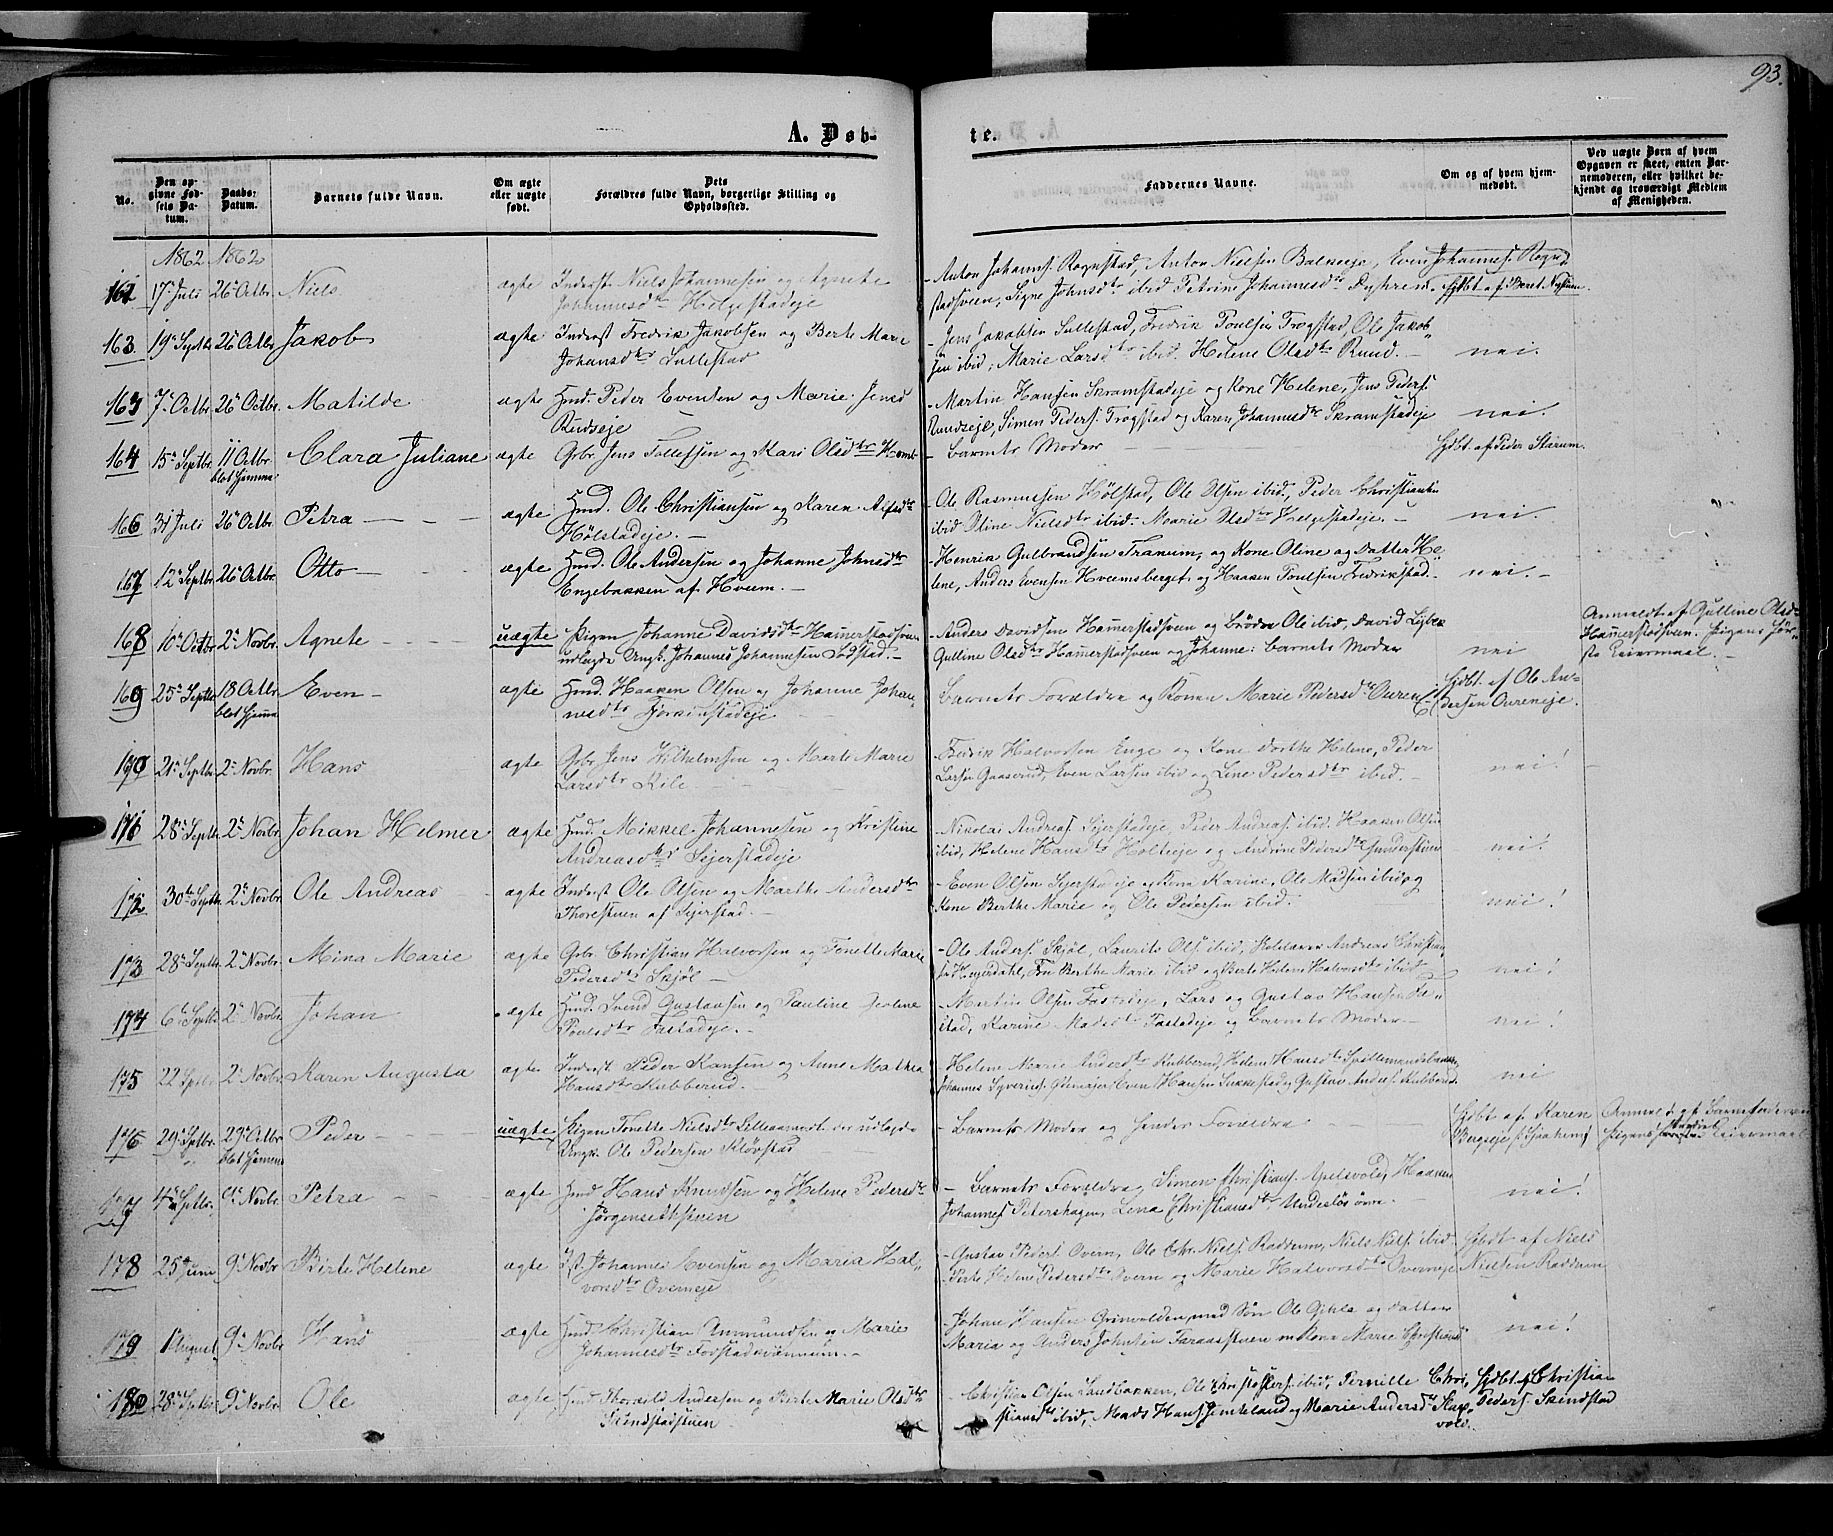 93.
A. Døb-
te.
No.
Den opgivne Fødsels Datum.
Daabs-Datum.
Barnets fulde Navn.
Om ægte eller uægte født.
Dets Forældres fulde Navn, borgerlige Stilling og Opholdssted.
Faddernes Navne.
Om og af hvem hjemmedøbt.
Ved uægte Børn af hvem Opgaven er skeet, enten Barnemoderen, eller hvilket bekjendt og troværdigt Medlem af Menigheden.
1862 1862
17 Juli 26 Octbr. Niels ægte Inderst Niels Johannesen og Agnete
Johannesdtr Helgestadeje
Anton Johanns. Rognstad, Anton Nielsen Balkeeje, Even Johannes. Rogn-
stadsveen, Signe Johnsdtr ibid Petrine Johannesdtr Dyhren. Hjdbt. af Beret Nysum.
163. 19 Septbr 26 Octbr Jakob ægte Inderst Fredrik Jakobsen og Berte Marie
Johansdtr Sullestad
Jens Jakobsen Sullestad, Fredrik Poulsen Trogstad, Ole Jakob-
sen ibid, Marie Larsdtr ibid. Helene Olsdtr Ruud. nei.
163 7 Octbr. 26 Octbr. Matilde ægte Hmd. Peder Evensen og Marie Jensd
Rudseje
Martin Hansen Skramstadeje og Kone Helene, Jens Peders.
Ruudseje, Simen Peders. Trogstad og Karen Johannesdtr Skramstadeje nei.
164 15 Septbr. 11 Octbr blot hjemme Clara Juliane ægte Gbr. Jens Tollefsen og Mari Olsdtr
Barnets Moder Hjdbt. af Peder Starum.
166 31 Juli 26 Octbr. Petra ægte Hmd. Ole Christiansen og Karen
Hølstadeje.
Ole Rasmussen Hølstad, Ole Olsen ibid, Peder Christiansen
ibid Oline Nielsdtr ibid. Marie Olsdtr Helgestadeje. nei.
167 12 Septbr. 26 Octbr. Otto ægte Hmd. Ole Andersen og Johanne Johnsdtr
Engebakken af Hveem.
Henria Gulbrandsen Tranum, og Kone Oline og Datter He-
lene, Anders Evensen Hveemsberget, og Haaken Poulsen Fredrikstad. nei.
168 10 Octbr 2 Novbr. Agnete uægte Pigen Johanne Davidsdtr Hamerstadsveen
udlagde Ungk. Johannes Johannesen Sodstad.
Anders Davidsen Hamerstadsveen og Brødre Ole ibid, David
Gulline Olsdtr Hamerstadsveen og Johanne: Barnets Moder nei
Anmeldt af Gulline Olsd-
Hamerstadsveen. Pigens før-
ste Leiermaal.
169 25 Septbr. 18 Octbr. blot hjemme Even ægte Hmd. Haaken Olsen og Johanne Johan-
nesdtr
Barnets Forældre og Konen Marie Pedersd Ouren
Hjdbt. af Ole An-
dersen Oureneje.
170 21 Septbr 2 Novbr. Hans ægte Gbr. Jens Wilhelmsen og Marte Marie
Larsdtr Kile.
Fredrik Halvorsen Enge og Kone Dorthe Helene, Peder
Larsen Gaaserud, Even Larsen ibid og Lene Pedersdtr ibid. nei!
171 28 Septbr. 2 Novbr. Johan Helmer ægte Hmd. Mikkel Johannesen og Kristine
Andreasdtr Sejerstadeje
Nikolai Andreas. Sejerstadeje, Peder Andreas. ibid. Haaken Olsen
ibid, Helene Hansdtr Holteeje og Andrine Pedersdtr nei!
172 30 Septbr 2 Novbr Ole Andreas ægte Inderst Ole Olsen og Marthe Andersdtr
Thorestuen af Sejerstad.
Even Olsen Sejerstadeje og Kone Karine, Ole Madsen ibid og
Kone Berthe Marie og Ole Pedersen ibid. nei!
173 28 Septbr. 2 Novbr. Mina Marie ægte Gbr. Christian Halvorsen og Tonette Marie
Pedersdtr Skjøl.
Ole Anders. Skjøl, Laurits Ols. ibid, Andreas Christian-
sen Hejerdahl, Berthe Marie ibid og Berte Helene Halvorsdtr ibid nei!
174 6 Septbr. 2 Novbr. Johan ægte Hmd. Svend Gustavsen og Pauline
Poulsdtr Fastadeje.
Martin Olsen Fastadeje, Lars og Gustav Hansen Fa-
stad, Karine Madsdtr Fastadeje og Barnets Moder. nei!
175 22 Septbr 2 Novbr. Karen Augusta ægte Inderst Peder Hansen og Anne Mathea
Hansdtr Kubberud.
Helene Marie Andersdtr Kubberud, Helene Hansdtr Spillemandsbakken,
Johannes Syverins. Even Hansen og Gustav Anders. Kubberud. nei
176 29 Septbr. 29 Octbr blot hjemme Peder uægte Pigen Tonette Nielsdtr udlagde
Ungk. Ole Pedersen Kløvstad
Barnets Moder og hendes Forældre
Hjdbt af Karen
Bergseje
Anmeldt af Barnefaderen
Pigens Leiermaal
177 4 Septbr. 9 Novbr. Petra ægte Hmd Hans Knudsen og Helene Pedersdtr
Jørgensethstuen
Barnets Forældre, Simen Christians. Apelsvold, Haaken
Johannes. Petershagen, Lena Christiansdtr Undeslös övre. nei!
178 25 Juni 9 Novbr. Birte Helene ægte Johannes Evensen og Maria Hal-
vorsdtr Overneje
Gustav Peders. Overn, Ole Chr. Niels. Raddum, Niels Niels. ibid.
Berte Helene Pedersdtr Overn og Marie Halvorsdtr Overneje
Hjdbt af Niels
Nielsen Raddum
179 1 August 9 Novbr. Hans ægte Hmd Christian Ammundsen og Marie
Johannesdtr
Johan Hansen Grimvolden, med Søn Ole og Datter
Maria og Anders Johnsen og Kone Marie Christians nei!
180 28 Septbr. 9 Novbr. Ole ægte Hmd Thorvald Andersen og Birte Marie Olsdtr
Skindstadstuen
Christian Olsen Sandbakken, Ole Christoffers. ibid, Pernille Chri-
stiansdtr ibid, Mads Hans. Jemteland og Marie Andersd Slag-
vold.
Hjdbt. af Christian
Peders. Skindstad